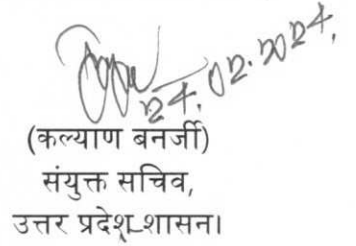 24.02.2024,
(कल्याण बनर्जी)
संयुक्त सचिव,
उत्तर प्रदेश शासन।